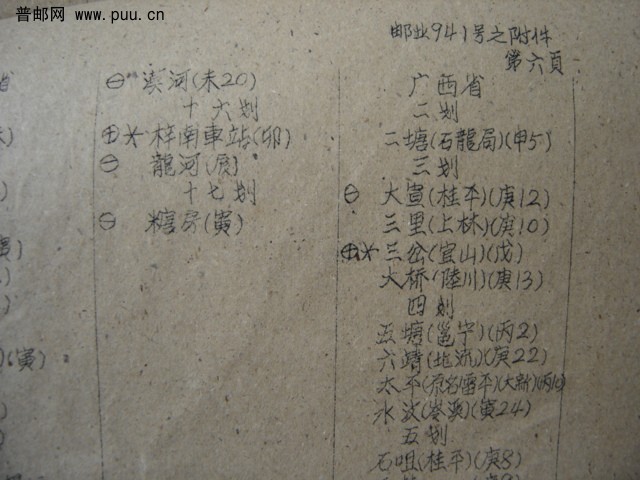 普邮网 www.puu.cn
邮业941号之附件
第六頁
⊖ 溪河(未20)
十六划
⊕*梓南車站(卯)
⊖ 龍河(辰)
十七划
⊖ 糖房(寅)
广西省
二划
二塘(石龍局)(申5)
三划
⊖ 大宣(桂平)(庚12)
三里(上林)(庚10)
⊕*三岔(宜山)(戊)
大桥(陸川)(庚13)
四划
五塘(邕宁)(丙2)
六靖(北流)(庚22)
太平(原名雷平)(大新)(丙
水汶(岑溪)(寅24)
五划
石咀(桂平)(庚8)
(寅)